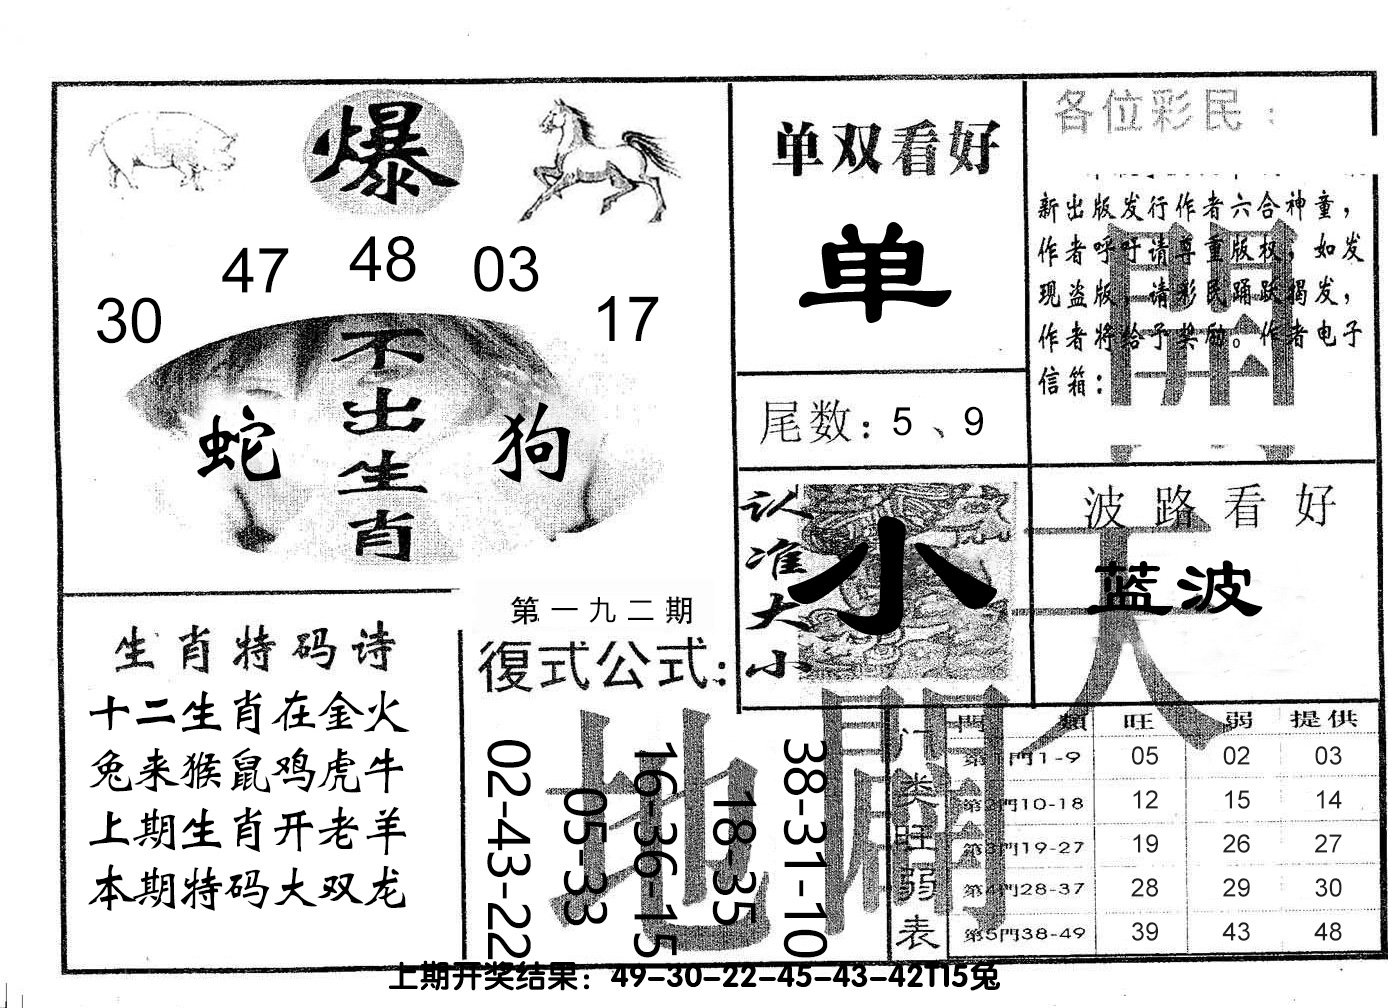 爆
47 48 03
30 17
不出生肖
蛇 狗
单双看好
单
尾数：5、9
认准大小
小
各位彩民：
新出版发行作者六合神童，
作者呼吁请尊重版权，如发
现盗版，请彩民踊跃揭发，
作者将给予奖励。作者电子
信箱：
波路看好
蓝波
天
開
地
闢
生肖特码诗
十二生肖在金火
兔来猴鼠鸡虎牛
上期生肖开老羊
本期特码大双龙
第一九二期
復式公式：
02-43-22
05-33
16-36-15
18-35
38-31-10
门类旺弱表
門類 旺 弱 提供
第1門1-9 05 02 03
第2門10-18 12 15 14
第3門19-27 19 26 27
第4門28-37 28 29 30
第5門38-49 39 43 48
上期开奖结果：49-30-22-45-43-42T15兔